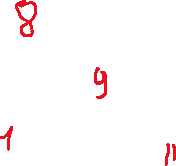 8
9
1
11